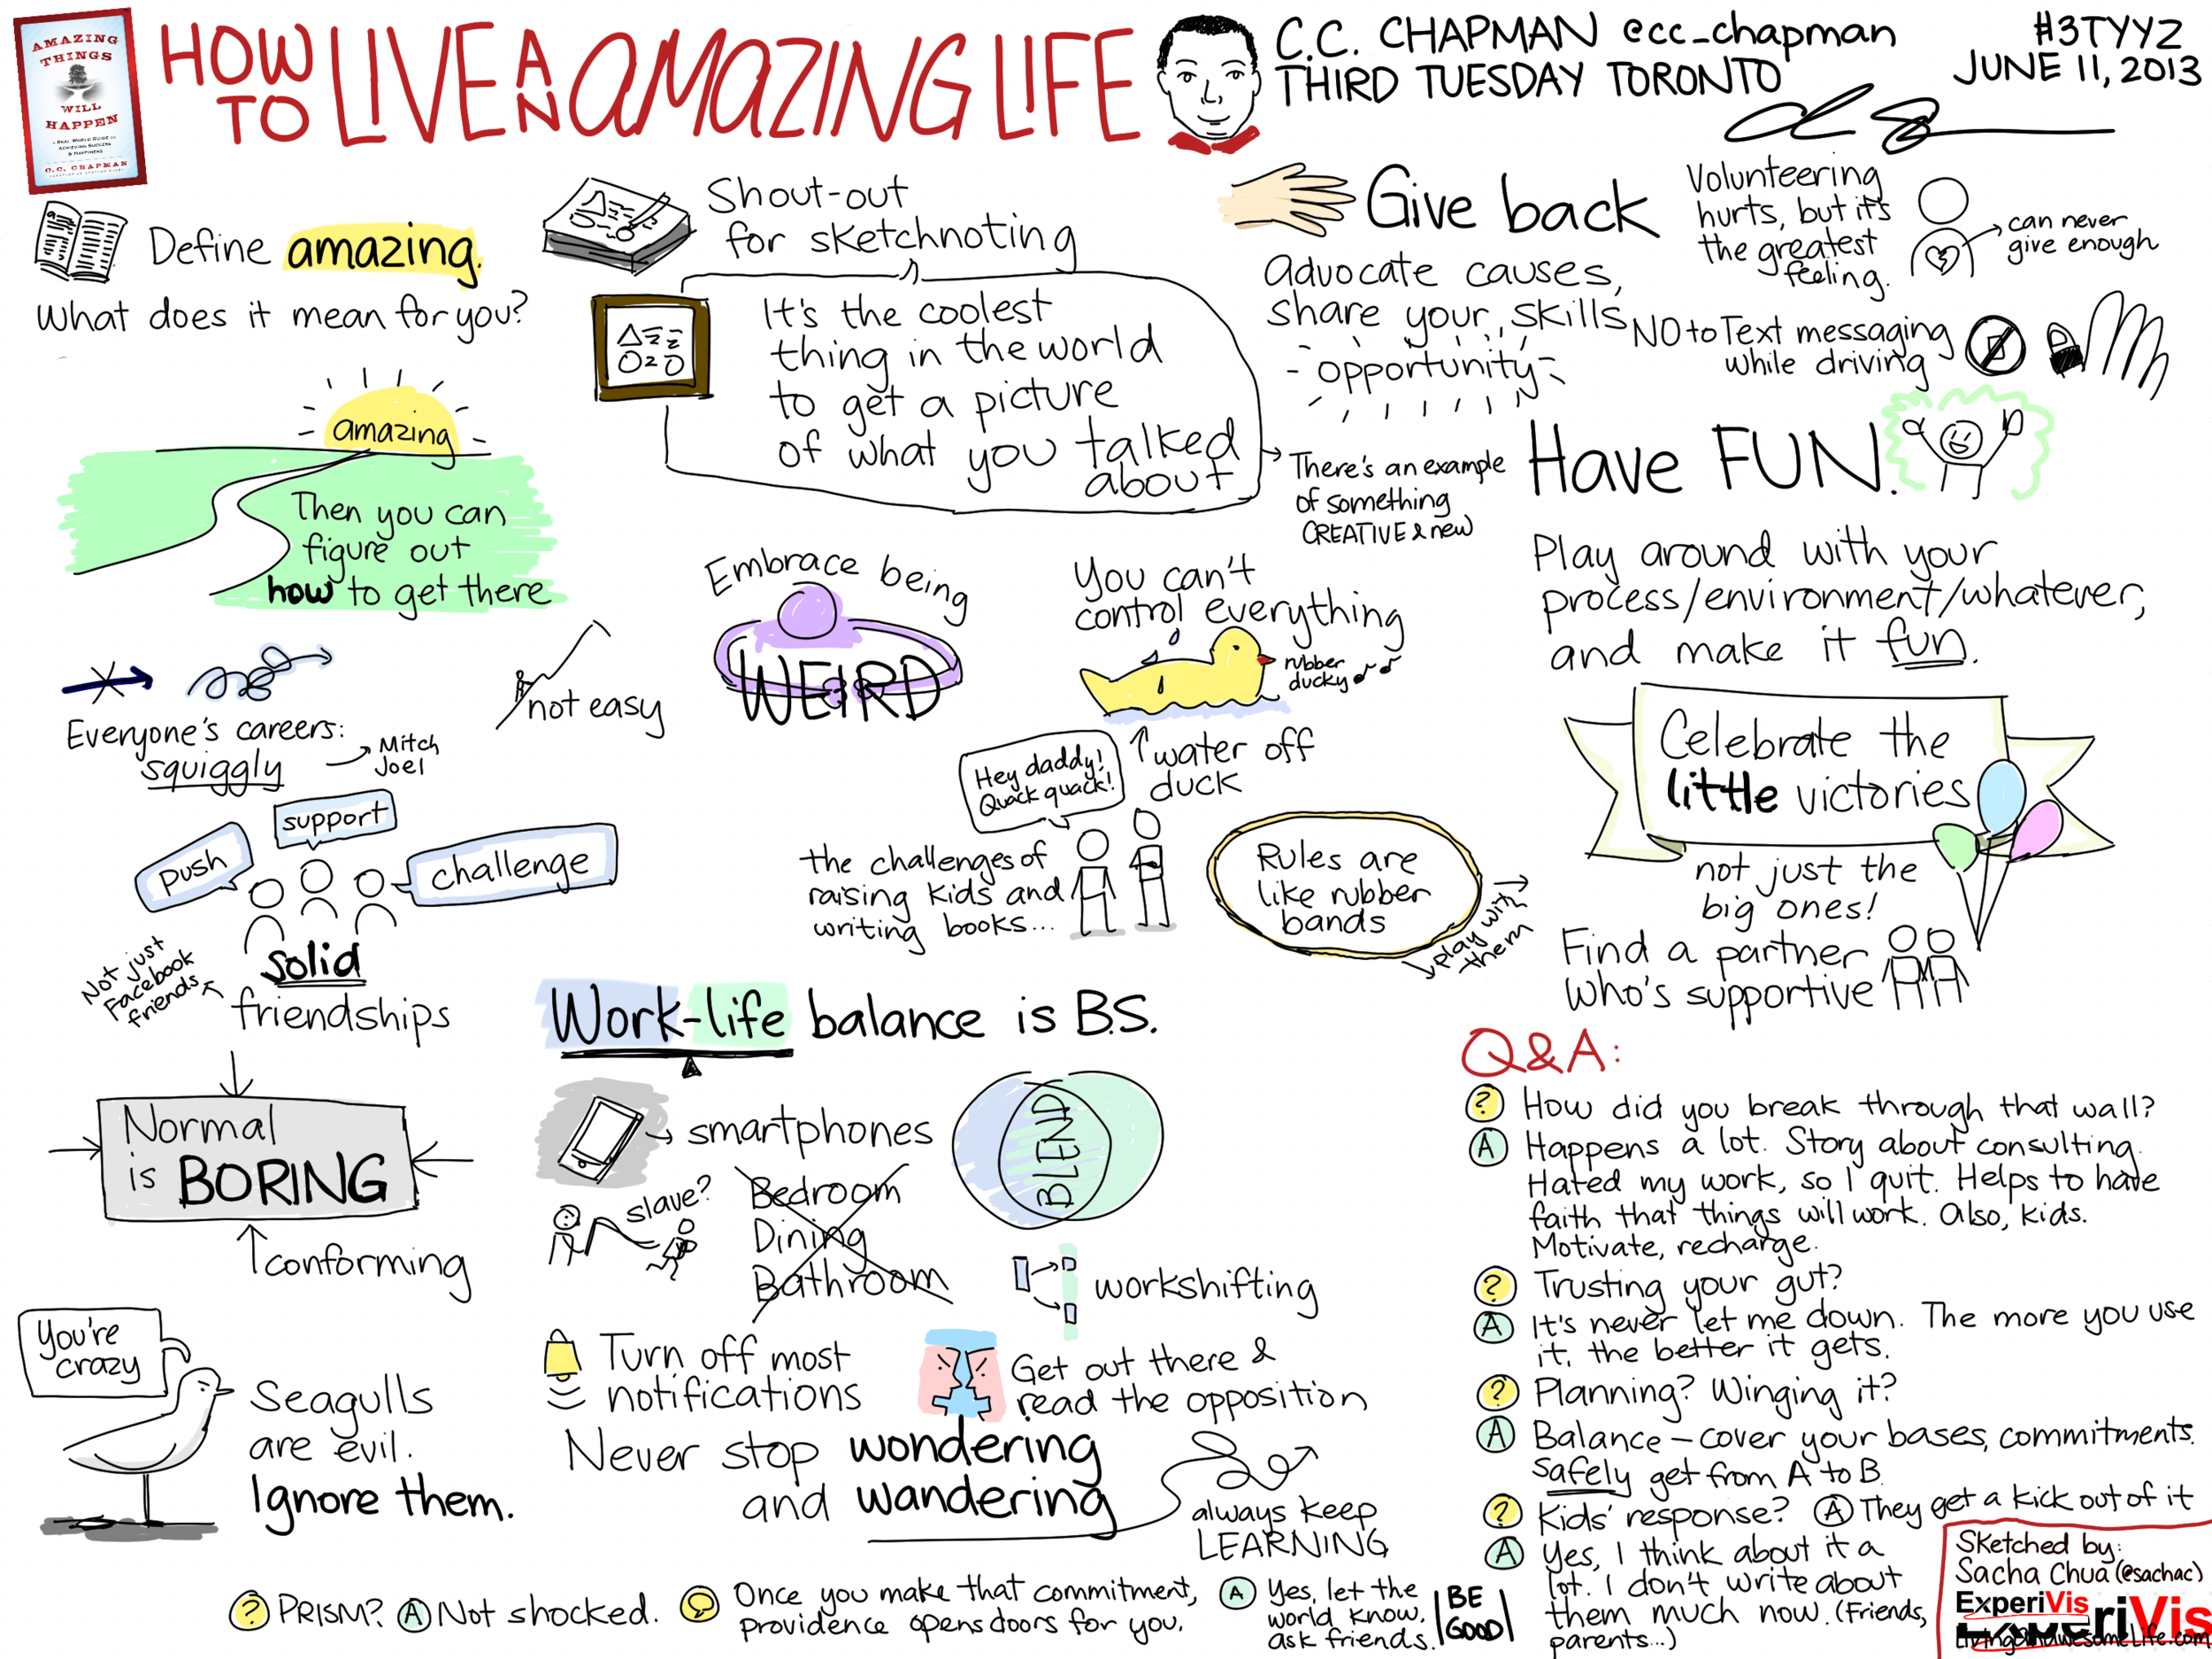 AMAZING
THINGS
WILL
HAPPEN
A REAL WORLD GUIDE ON
ACHIEVING SUCCESS
& HAPPINESS
C.C. CHAPMAN
HOW TO LIVE AN AMAZING LIFE
C.C. CHAPMAN @cc_chapman
THIRD TUESDAY TORONTO
#3TYYZ
JUNE 11, 2013
Define amazing.
What does it mean for you?
amazing
Then you can
figure out
how to get there
Everyone's careers:
squiggly
Mitch
Joel
not easy
push
support
challenge
Not just
Facebook
friends
solid
friendships
Normal
is BORING
conforming
You're
crazy
Seagulls
are evil.
Ignore them.
Shout-out
for sketchnoting
It's the coolest
thing in the world
to get a picture
of what you talked
about
There's an example
of something
CREATIVE & new
Embrace being
WEIRD
You can't
control everything
rubber
ducky
water off
duck
Hey daddy!
Quack quack!
the challenges of
raising kids and
writing books...
Rules are
like rubber
bands
play with
them
Work-life balance is B.S.
smartphones
slave?
Bedroom
Dining
Bathroom
BLEND
workshifting
Turn off most
notifications
Get out there &
read the opposition
Never stop wondering
and wandering
always keep
LEARNING
Give back
Advocate causes,
share your skills
opportunity
Volunteering
hurts, but it's
the greatest
feeling.
can never
give enough
NO to Text messaging
while driving
Have FUN.
Play around with your
process/environment/whatever,
and make it fun.
Celebrate the
little victories
not just the
big ones!
Find a partner
who's supportive
Q&A:
? How did you break through that wall?
A Happens a lot. Story about consulting.
Hated my work, so I quit. Helps to have
faith that things will work. Also, kids.
Motivate, recharge.
? Trusting your gut?
A It's never let me down. The more you use
it, the better it gets.
? Planning? Winging it?
A Balance – cover your bases, commitments.
Safely get from A to B.
? Kids' response? A They get a kick out of it
A Yes, I think about it a
lot. I don't write about
them much now. (Friends,
parents...)
? PRISM? A Not shocked.
Once you make that commitment,
providence opens doors for you.
A Yes, let the
world know,
ask friends.
BE
GOOD
Sketched by:
Sacha Chua (@sachac)
ExperiVis
ExperiVis
LivingAnAwesomeLife.com